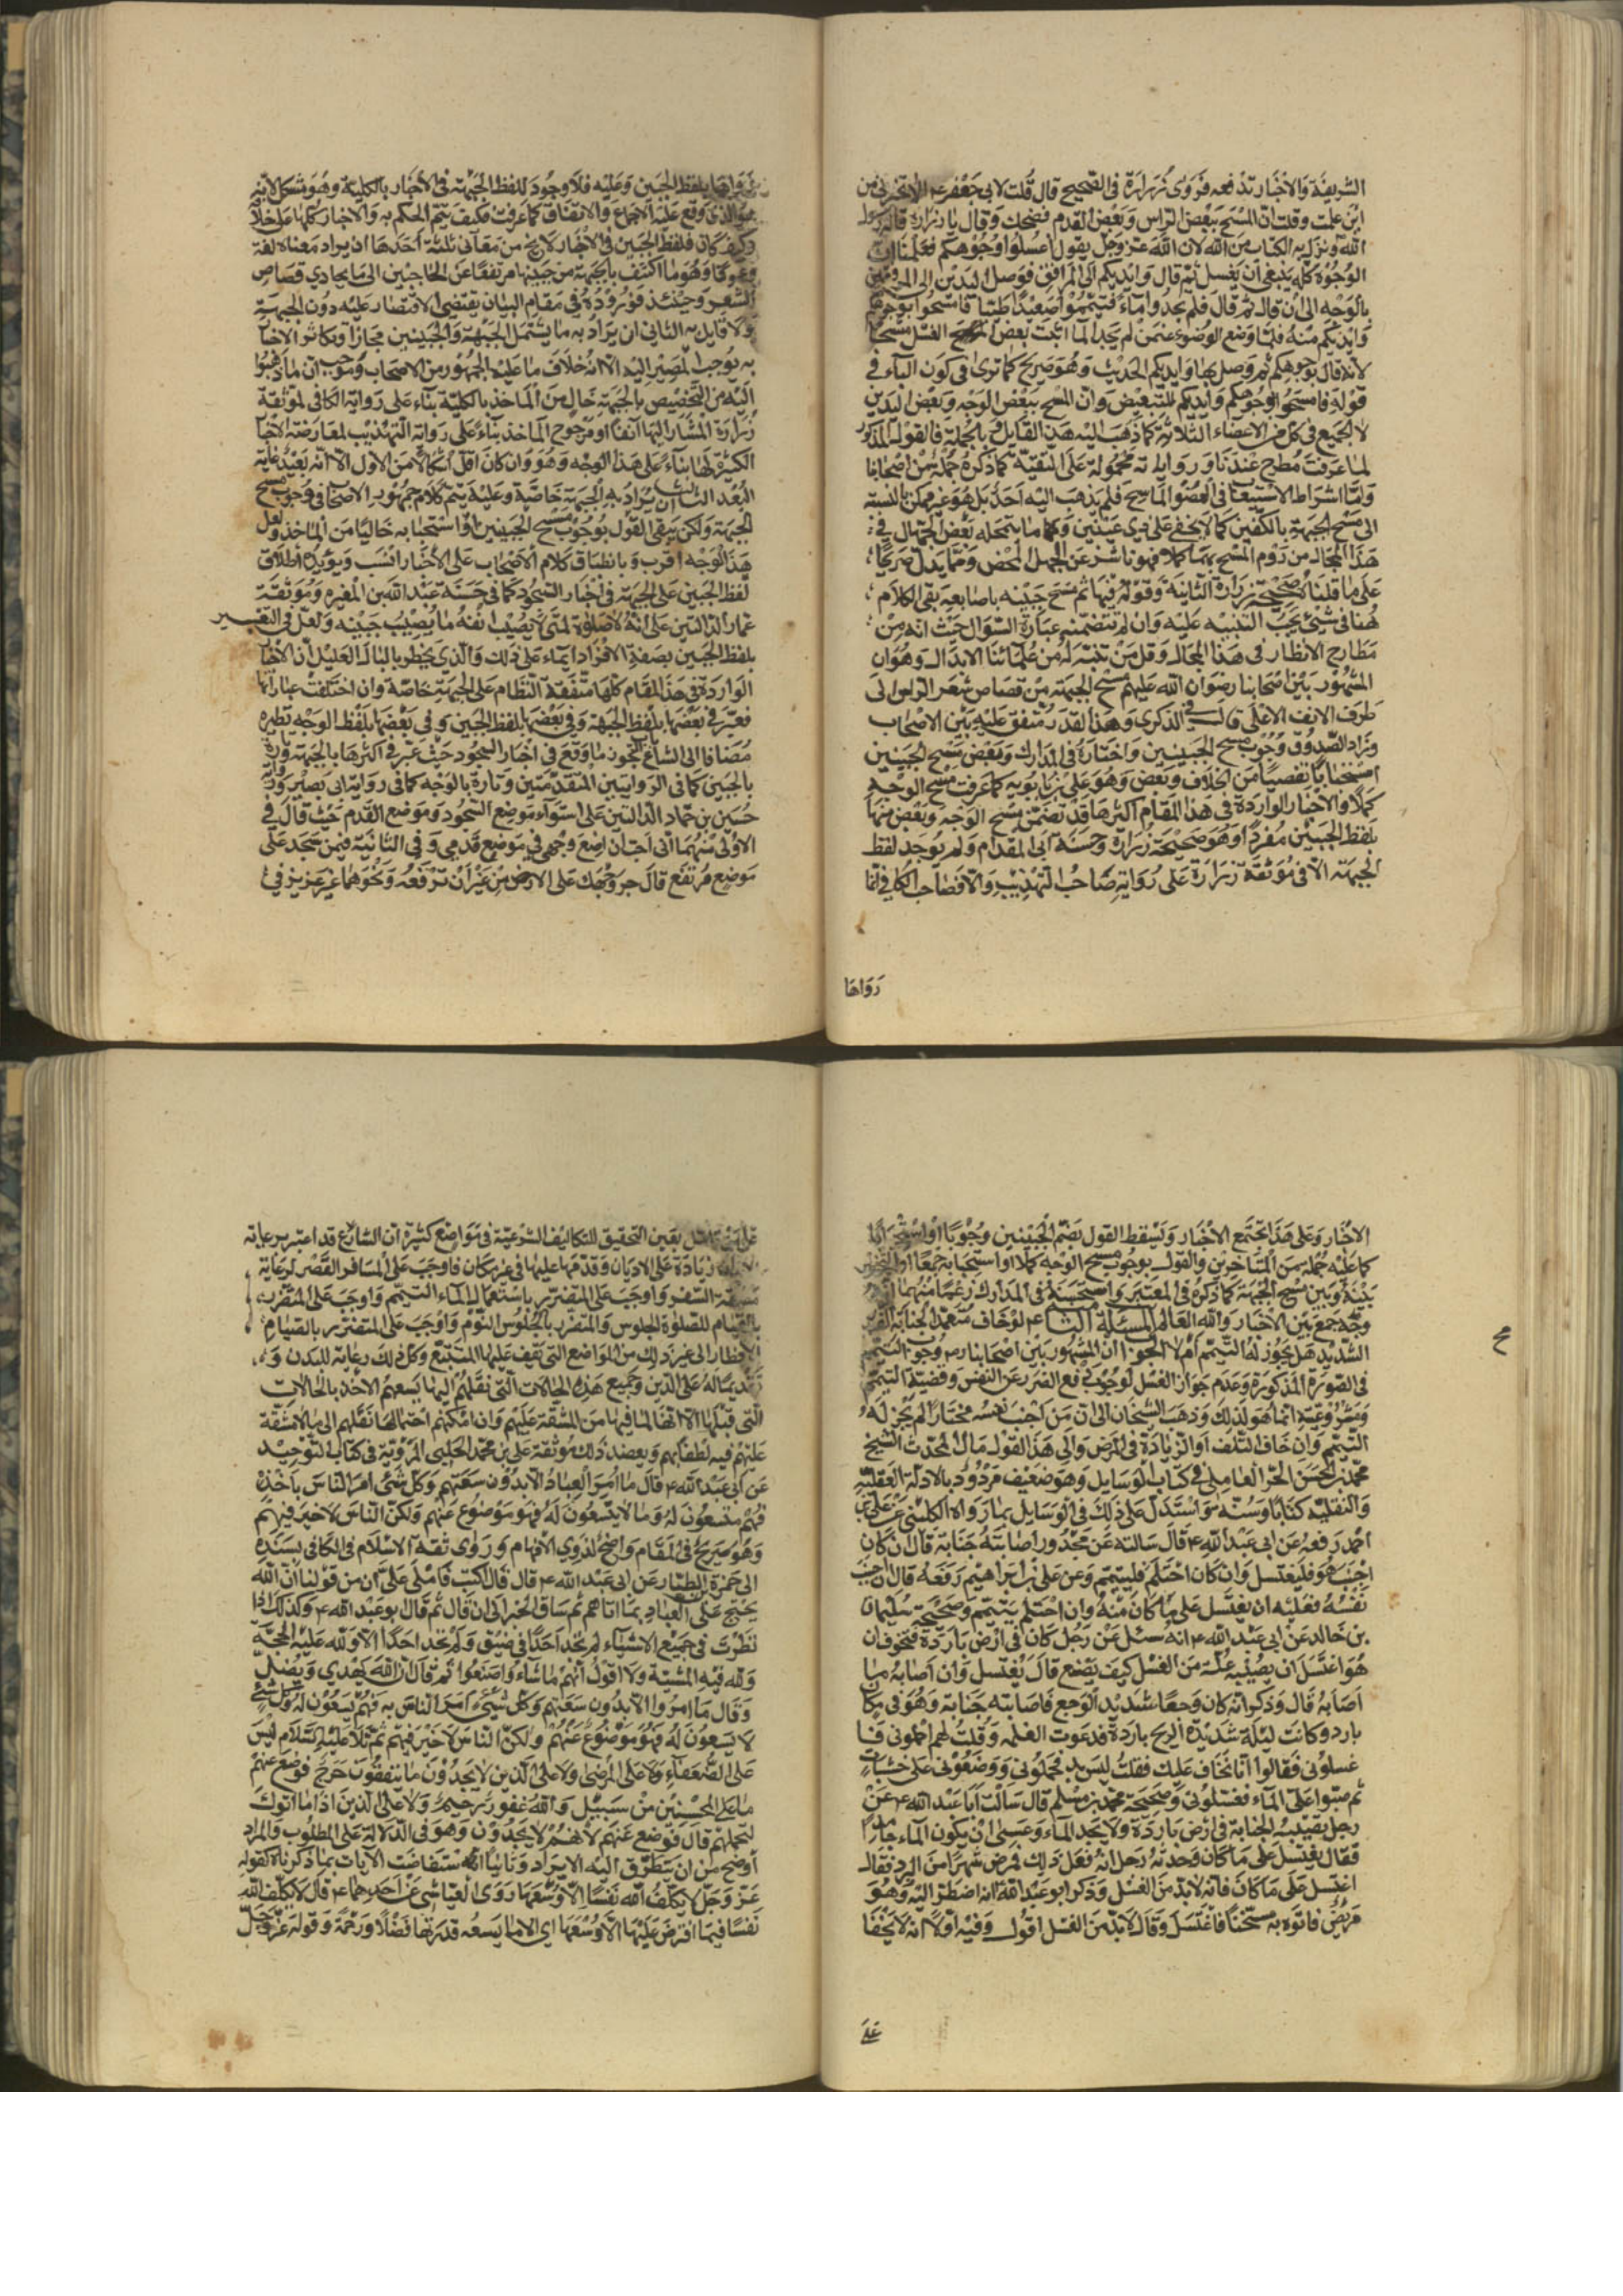 الشريفة والاخبار تدفعه فروى زرارة في الصحيح قال قلت لابي جعفر ع الا تخبرني من
اين علمت وقلت ان المسح ببعض الراس وبعض القدم فضحك وقال يا زرارة قاله رسول
الله ونزل به الكتاب من الله لان الله عز وجل يقول اغسلوا وجوهكم فعلمنا ان
الوجه كله ينبغي ان يغسل ثم قال وايديكم الى المرافق فوصل اليدين الى المرفقين
بالوجه الى ان قال ثم قال فلم يجدوا ماء فتيمموا صعيدا طيبا فامسحوا بوجوهكم
وايديكم منه فلما وضع الوضوء عمن لم يجد الماء اثبت بعض الغسل مسحا
لانه قال بوجوهكم ثم وصل بها وايديكم الحديث وهو صريح كما ترى في كون الباء في
قوله فامسحوا بوجوهكم وايديكم للتبعيض وان المسح ببعض الوجه وبعض اليدين
لا الجميع في كل من الاعضاء الثلاثة كما ذهب اليه هذا القايل وبالجملة فالقول المذكور
لما عرفت مطرح عندنا ورواياته محمولة على التقية كما ذكره جملة من اصحابنا
واما اشتراط الاستيعاب في العضو الماسح فلم يذهب اليه احد بل هو غير ممكن بالنسبة
الى مسح الجبهة بالكفين كما لا يخفى على ذي عينين وكلما ما يتمحله بعض الجهال في
هذا المجال من لزوم المسح بهما كملا فهو ناش عن الجهل المحض ومما يدل صريحا
على ما قلناه صحيحة زرارة الثانية وقوله فيها ثم مسح جبينه باصابعه بقى الكلام
هنا في شيئ يجب التنبيه عليه وان لم تتضمنه عبارة السؤال حيث انه من
مطارح الانظار في هذا المجال وقل من تنبه له من علمائنا الابدال وهو ان
المشهور بين اصحابنا رضوان الله عليهم مسح الجبهة من قصاص شعر الراس الى
طرف الانف الاعلى قال في الذكرى وهذا القدر متفق عليه بين الاصحاب
وزاد الصدوق وجوب مسح الجبينين واختاره في المدارك وبعض مسح الجبينين
استحبابا تفصيا من الخلاف وبعض وهو علي بن بابويه كما عرفت مسح الوجه
كملا والاخبار الواردة في هذا المقام اكثرها قد تضمن مسح الوجه وبعض منها
بلفظ الجبين مفردا وهو صحيحة زرارة وحسنة ابي المقدام ولم يوجد لفظ
الجبهة الا في موثقة زرارة على رواية صاحب التهذيب والا فصاحب الكافي انما
رواها
رواها بلفظ الجبين وعليه فلا وجود للفظ الجبهة في الاخبار بالكلية وهو مشكل لانه
هو الذي وقع عليه الاجماع والاتفاق كما عرفت فكيف يتم الحكم به والاخبار كلها على خلافه
وكيف كان فلفظ الجبين في الاخبار لا يخ من معاني ثلثة احدها ان يراد معناه لغة
وعرفا وهو ما اكتنف بالجبهة من جبينها مرتفعا عن الحاجبين الى ما يحاذي قصاص
الشعر وحينئذ فوروده في مقام البيان يقتضي الاقتصار عليه دون الجبهة
ولا قايل به الثاني ان يراد به ما يشتمل الجبهة والجبينين مجازا وتكاثر الاخبار
به يوجب المصير اليه الا انه خلاف ما عليه الجمهور من الاصحاب وموجب ان ما ذهبوا
اليه من التخصيص بالجبهة خال من الماخذ بالكلية بناء على رواية الكافي لموثقة
زرارة المشار اليها آنفا او مرجوح الماخذ بناء على رواية التهذيب لمعارضة الاخبار
الكثيرة لها بناء على هذا الوجه وهو وان كان اقل اشكالا من الاول الا انه بعيد غاية
البعد الثالث ان يراد به الجبهة خاصة وعليه يتم كلام جمهور الاصحاب في وجوب مسح
الجبهة ولكن يبقى القول بوجوب مسح الجبينين او استحبابه خاليا من الماخذ ولعل
هذا الوجه اقرب وبانطباق كلام الاصحاب على الاخبار انسب ويؤيده اطلاق
لفظ الجبين على الجبهة في اخبار السجود كما في حسنة عبد الله بن المغيرة وموثقة
عمار الدالتين على انه لا صلوة لمن لا يصيب انفه ما يصيب جبينه ولعل في التعبير
بلفظ الجبين بصفة الافراد ايماء على ذلك والذي يخطر بالبال العليل ان الاخبار
الواردة في هذا المقام كلها متفقة النظام على الجبهة خاصة وان اختلفت عباراتها
فعبر في بعضها بلفظ الجبهة وفي بعضها بلفظ الجبين وفي بعضها بلفظ الوجه نظيره
مضافا الى اتساع باب التجوز ما وقع في اخبار السجود حيث عبر في اكثرها بالجبهة وتارة
بالجبين كما في الروايتين المتقدمتين وتارة بالوجه كما في رواية ابي بصير ورواية
حسين بن حماد الدالتين على استواء موضع السجود وموضع القدم حيث قال في
الاولى منهما اني احب ان اضع وجهي في موضع قدمي وفي الثانية فيمن سجد على
موضع مرتفع قال جر وجهك على الارض من غير ان ترفعه ونحوهما غير عزيز في
الاخبار وعلى هذا تجتمع الاخبار ويسقط القول بضم الجبينين وجوبا او استحبابا
كما عليه جملة من المتاخرين والقول بوجوب مسح الوجه كملا او استحبابه جمعا او التخيير
بينه وبين مسح الجبهة كما ذكره في المعتبر واستحسنه في المدارك زعما منهما انه
وجه جمع بين الاخبار والله العالم المسئلة لو خاف متعمد الجنابة الضرر
الشديد هل يجوز له التيمم ام لا الجواب ان المشهور بين اصحابنا رض وجوب التيمم
في الصورة المذكورة وعدم جواز الغسل لوجوب دفع الضرر عن النفس وقضية التيمم
ومشروعيته انما هو لذلك وذهب الشيخان الى ان من اجنب نفسه مختارا لم يجز له
التيمم وان خاف التلف او الزيادة في المرض والى هذا القول مال المحدث الشيخ
محمد بن الحسن الحر العاملي في كتاب الوسايل وهو ضعيف مردود بالادلة العقلية
والنقلية كتابا وسنة واستدل على ذلك في الوسايل بما رواه الكليني عن علي بن
احمد رفعه عن ابي عبد الله ع قال سالته عن مجدور اصابته جنابة قال ان كان
اجنب هو فليغتسل وان كان احتلم فليتيمم وعن علي بن ابراهيم رفعه قال ان اجنب
نفسه فعليه ان يغتسل على ما كان منه وان احتلم يتيمم وصحيحة سليمان
بن خالد عن ابي عبد الله ع انه سئل عن رجل كان في ارض باردة فتخوف ان
هو اغتسل ان يصيبه علة من الغسل كيف يصنع قال يغتسل وان اصابه ما
اصابه قال وذكر انه كان وجعا شديد الوجع فاصابته جنابة وهو في مكان
بارد وكانت ليلة شديدة الريح باردة فدعوت الغلمة وقلت لهم احملوني فا
غسلوني فقالوا انا نخاف عليك فقلت ليس بد فحملوني ووضعوني على خشبات
ثم صبوا على الماء فغسلوني وصحيحة محمد بن مسلم قال سالت ابا عبد الله ع عن
رجل تصيبه الجنابة في ارض باردة ولا يجد الماء وعسى ان يكون الماء جامدا
فقال يغتسل على ما كان حدثه رجل انه فعل ذلك فمرض شهرا من البرد فقال
اغتسل على ما كان فانه لا بد من الغسل وذكر ابو عبد الله انه اضطر اليه وهو
مريض فاتوه به مسخنا فاغتسل وقال لا بد من الغسل اقول وفيه اولا انه لا يخفا
على
يقين التحقيق للتكاليف الشرعية في مواضع كثيرة ان الشارع قد اعتبر رعاية
زيادة على الاديان وقدمها عليها في غير مكان فاوجب على المسافر القصر لرعاية
مشقة السفر واوجب على المتضرر باستعمال الماء التيمم واوجب على المتضرر
بالقيام للصلوة الجلوس والمتضرر بالجلوس النوم واوجب على المتضرر بالصيام
الافطار الى غير ذلك من المواضع التي يقف عليها المتتبع وكل ذلك رعاية للبدن و
تقديما له على الدين وجميع هذه الحالات التي نقلهم اليها يسعهم الاخذ بالحالات
التي قبلها الا انه لما فيها من المشقة عليهم وان امكنهم احتمالها نقلهم الى ما لا مشقة
عليهم فيه لطفا بهم ويعضد ذلك موثقة علي بن محمد الحلبي المروية في كتاب التوحيد
عن ابي عبد الله ع قال ما امر العباد الا بدون سعتهم وكل شيئ امر الناس باخذه
فهم متسعون له وما لا يتسعون له فهو موضوع عنهم ولكن الناس لا خير فيهم
وهو صريح في المقام واضح لذوي الافهام وروى ثقة الاسلام في الكافي بسنده
الى حمزة الطيار عن ابي عبد الله ع قال قال اكتب فاملى علي ان من قولنا ان الله
يحتج على العباد بما اتاهم ثم ساق الخبر الى ان قال ثم قال ابو عبد الله ع وكذلك اذا
نظرت في جميع الاشياء لم تجد احدا في ضيق ولم تجد احدا الا ولله عليه الحجة
ولله فيه المشية ولا اقول انهم ما شاءوا صنعوا ثم قال ان الله يهدي ويضل
وقال ما امروا الا بدون سعتهم وكل شيئ امر الناس به فهم يسعون له وكل شئ
لا يسعون له فهو موضوع عنهم ولكن الناس لا خير فيهم ثم تلا عليه السلام ليس
على الضعفاء ولا على المرضى ولا على الذين لا يجدون ما ينفقون حرج فوضع عنهم
ما على المحسنين من سبيل والله غفور رحيم ولا على الذين اذا ما اتوك
لتحملهم قال فوضع عنهم لانهم لا يجدون وهو في الدلالة على المطلوب والمراد
اوضح من ان يتطرق اليه الايراد وثانيا انه استفاضت الآيات بما ذكرناه كقوله
عز وجل لا يكلف الله نفسا الا وسعها روى العياشي عن احدهما ع قال لا يكلف الله
نفسا فيما افترض عليها الا وسعها اي الا ما يسعه قدرتها فضلا ورحمة وقوله عز وجل